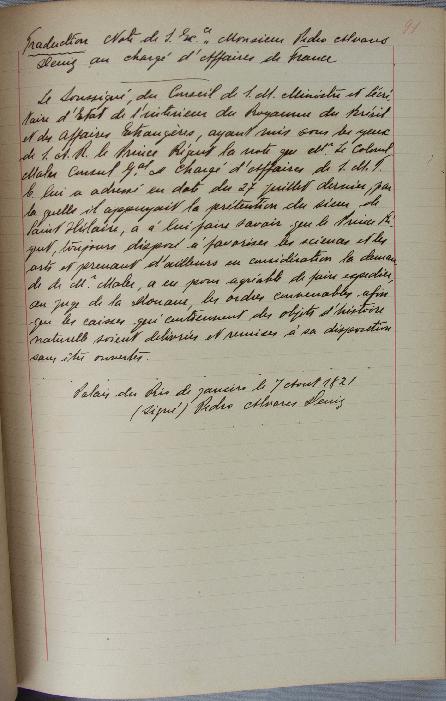 91
Traduction Note de S. Ex.ce Monsieur Pedro Alvares
Deniz au chargé d'Affaires de France
Le Soussigné, du Conseil de S. M. Ministre et Secré
taire d'Etat de l'intérieur du Royaume du Brésil
et des affaires Etrangères, ayant mis sous les yeux
de S. A. R. le Prince Régent la note que Mr. Le Colonel
Maler Consul Gal et Chargé d'Affaires de S. M. T.
C. lui a adressé en date du 27 juillet dernier, par
la quelle il appuyait la prétention du sieur de
Saint Hilaire, a à lui faire savoir que le Prince Ré
gent, toujours disposé à favoriser les sciences et les
arts et prenant d'ailleurs en considération la deman
de de Mr. Maler, a eu pour agréable de faire expédier,
au juge de la Douane, les ordres convenables afin
que les caisses qui contiennent des objets d'histoire
naturelle soient délivrées et remises à sa disposition
sans être ouvertes.
Palais du Rio de janeiro le 7 Août 1821
(signé) Pedro Alvares Deniz